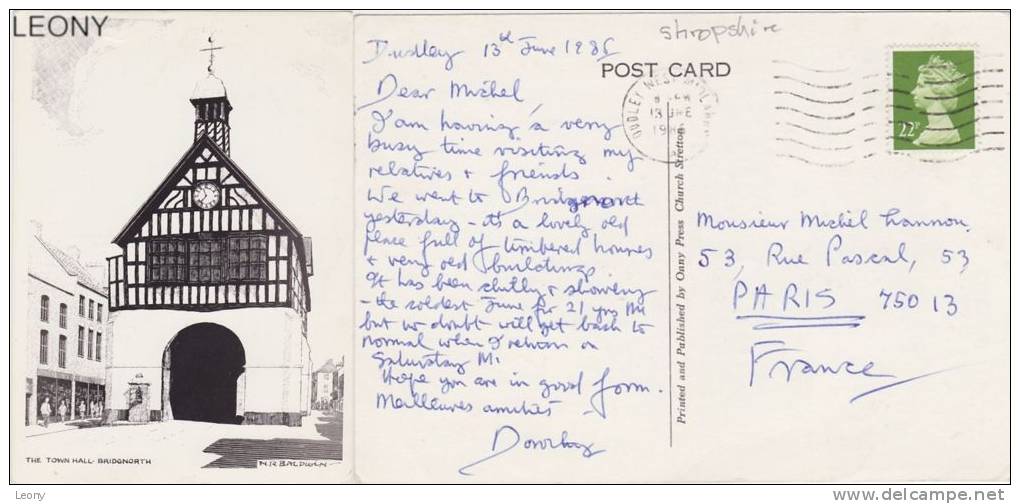 LEONY
THE TOWN HALL - BRIDGNORTH
N.R. BALDWIN
Dudley 13th June 198
Dear Michel,
I am having a very
busy time visiting my
relatives + friends.
We went to
yesterday - it's a lovely old
place full of timbered houses
+ very old buildings.
It has been chilly + showery
- the coldest June for 21 yrs
but no doubt will get back to
normal when I return on
Saturday
Hope you are in good form.
Meilleures amitiés
Dorothy
Shropshire
POST CARD
DUDLEY WEST MIDLANDS
13 JNE
22P
Printed and Published by Onny Press Church Stretton.
Monsieur Michel Lannou,
53, Rue Pascal, 53
PARIS 75013
France
Leony
Leony
www.delcampe.net